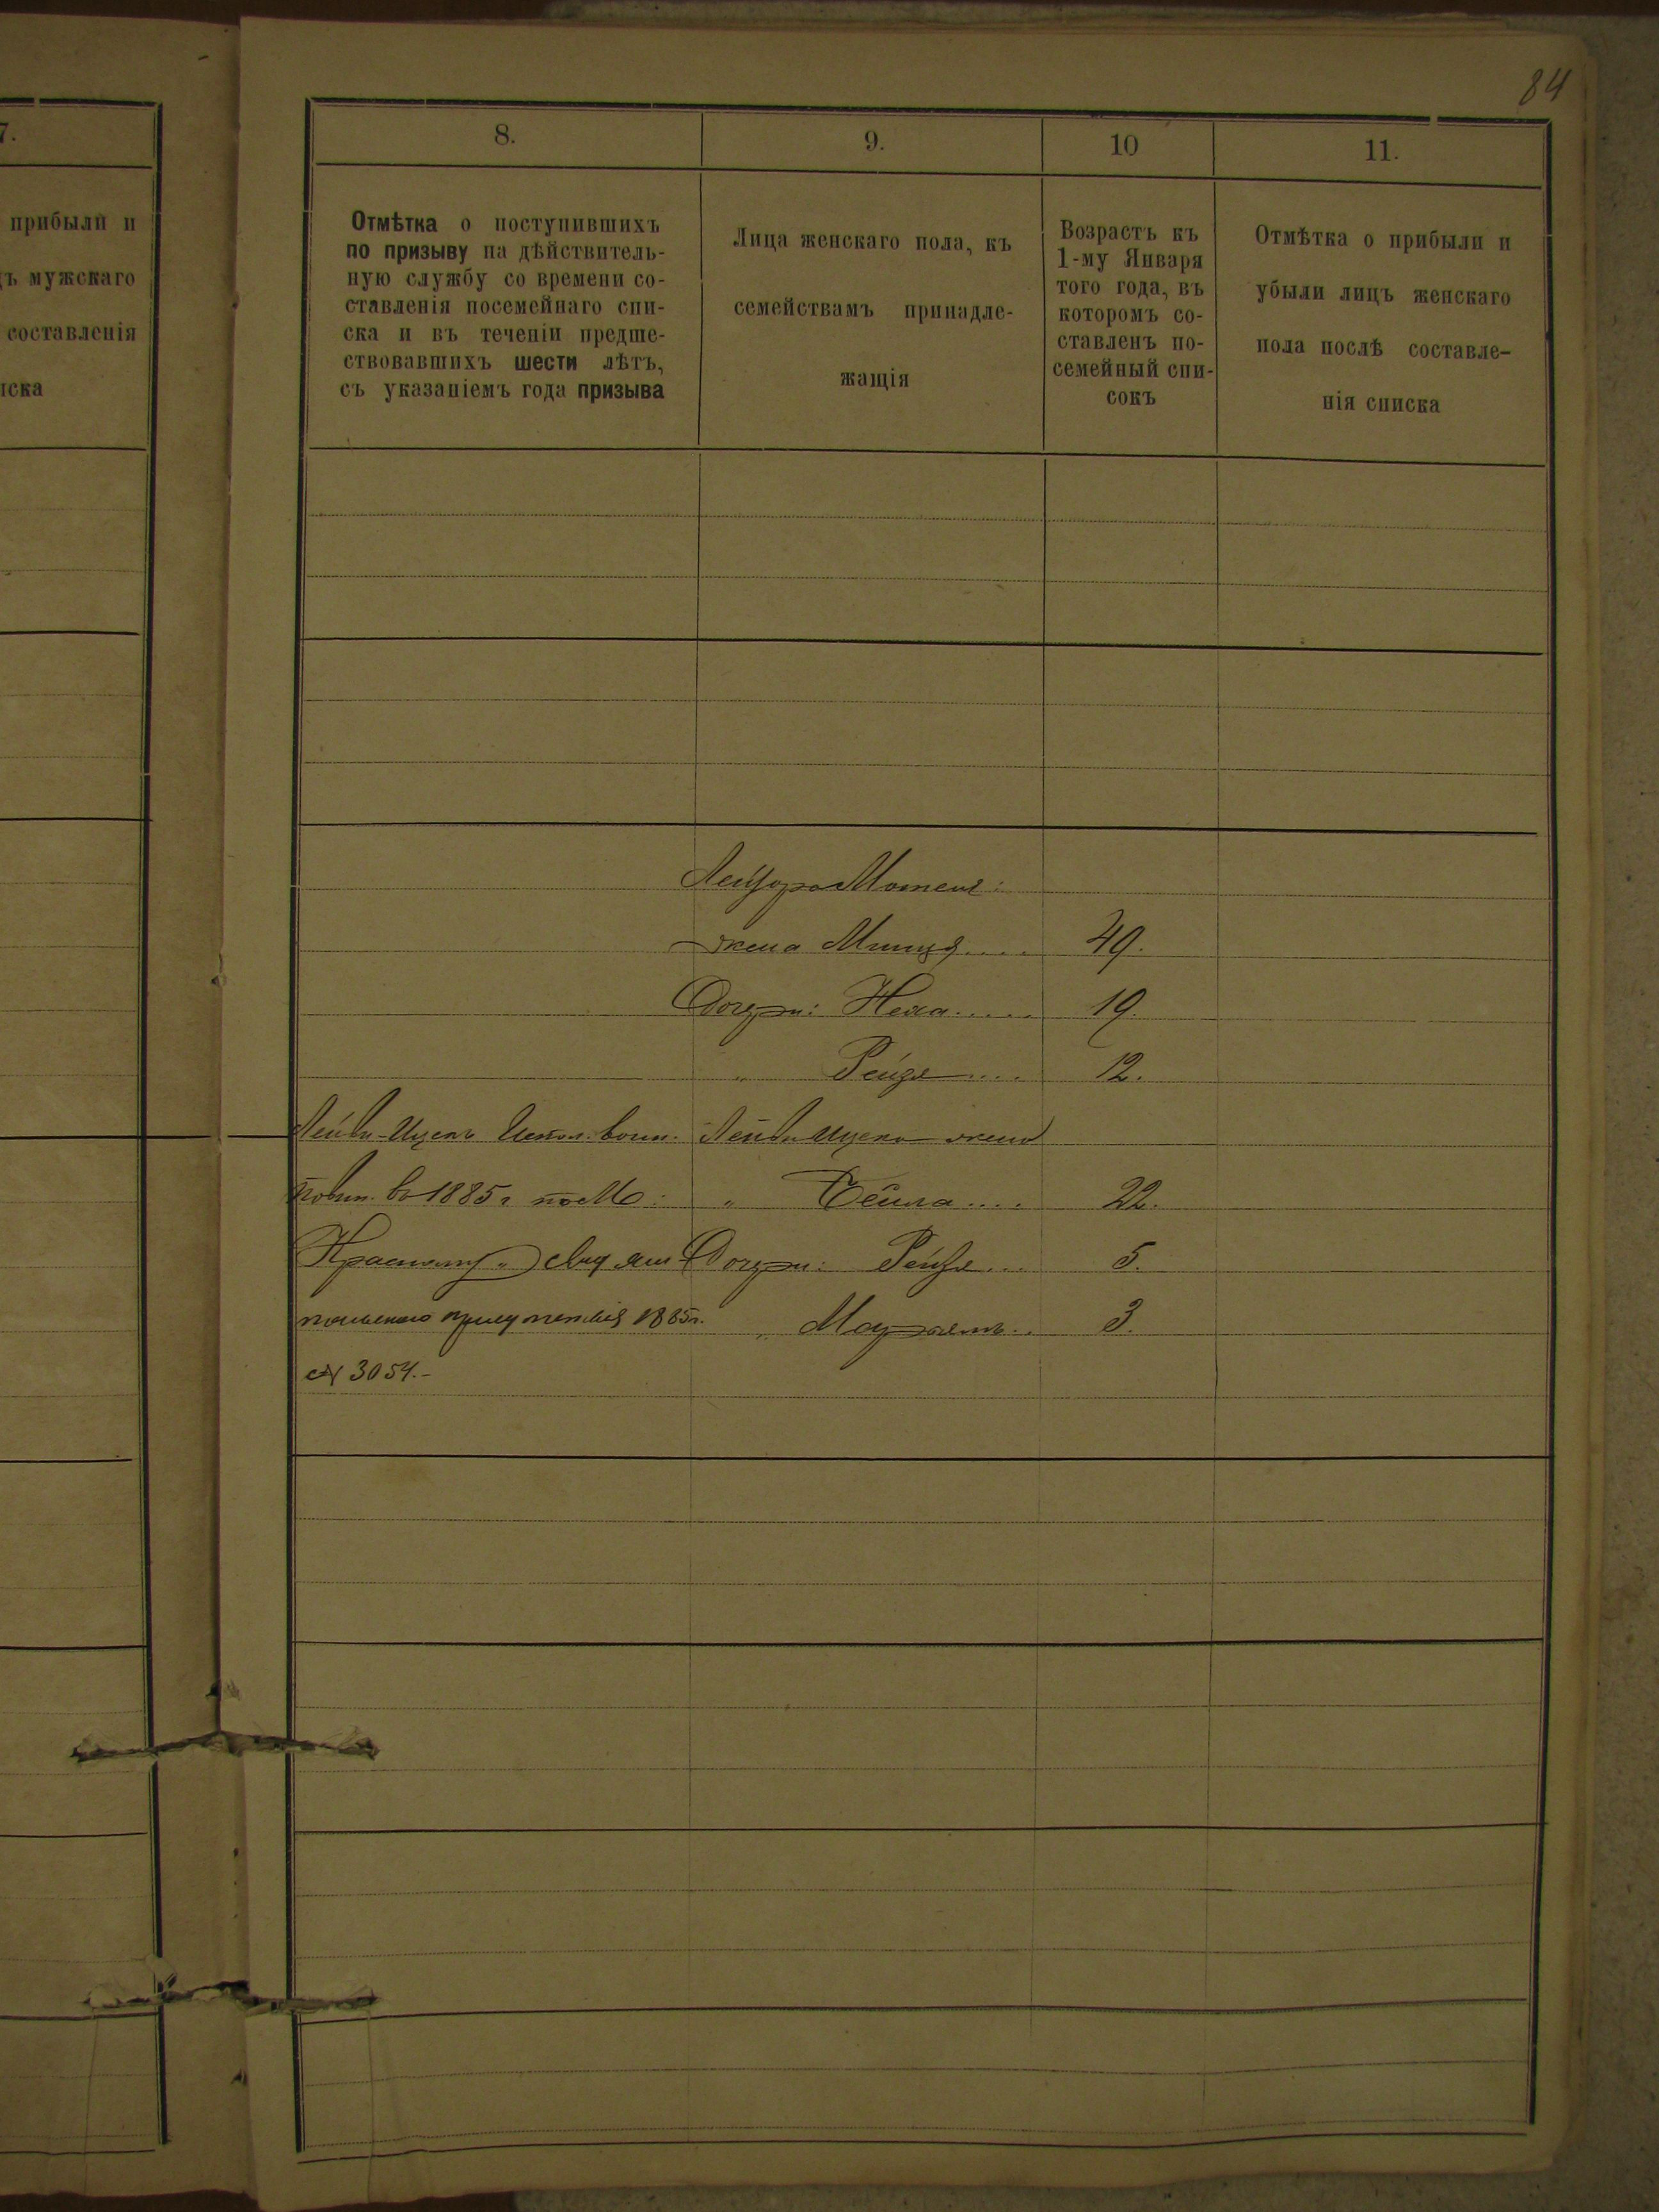 84
7.
прибыли и
ъ мужскаго
составленія
иска
8.
9.
10
11.
Отмѣтка о поступившихъ
по призыву на дѣйствитель-
ную службу со времени со-
ставленія посемейнаго спи-
ска и въ теченіи предше-
ствовавшихъ шести лѣтъ,
съ указаніемъ года призыва
Лица женскаго пола, къ
семействамъ принадле-
жащія
Возрастъ къ
1-му Января
того года, въ
которомъ со-
ставленъ по-
семейный спи-
сокъ
Отмѣтка о прибыли и
убыли лицъ женскаго
пола послѣ составле-
нія списка
Мотеля:
жена 49.
Дочери: Неха..... 19.
" Рейзя.... 12.
Лейви-Ицекъ Испол. воин. Лейви Ицека жена
повин. въ 1885 г. по
" Бейла.... 22.
Дочери: Рейзя... 5.
присутствія 1885 г. " Марьямъ.. 3.
№ 3054.-